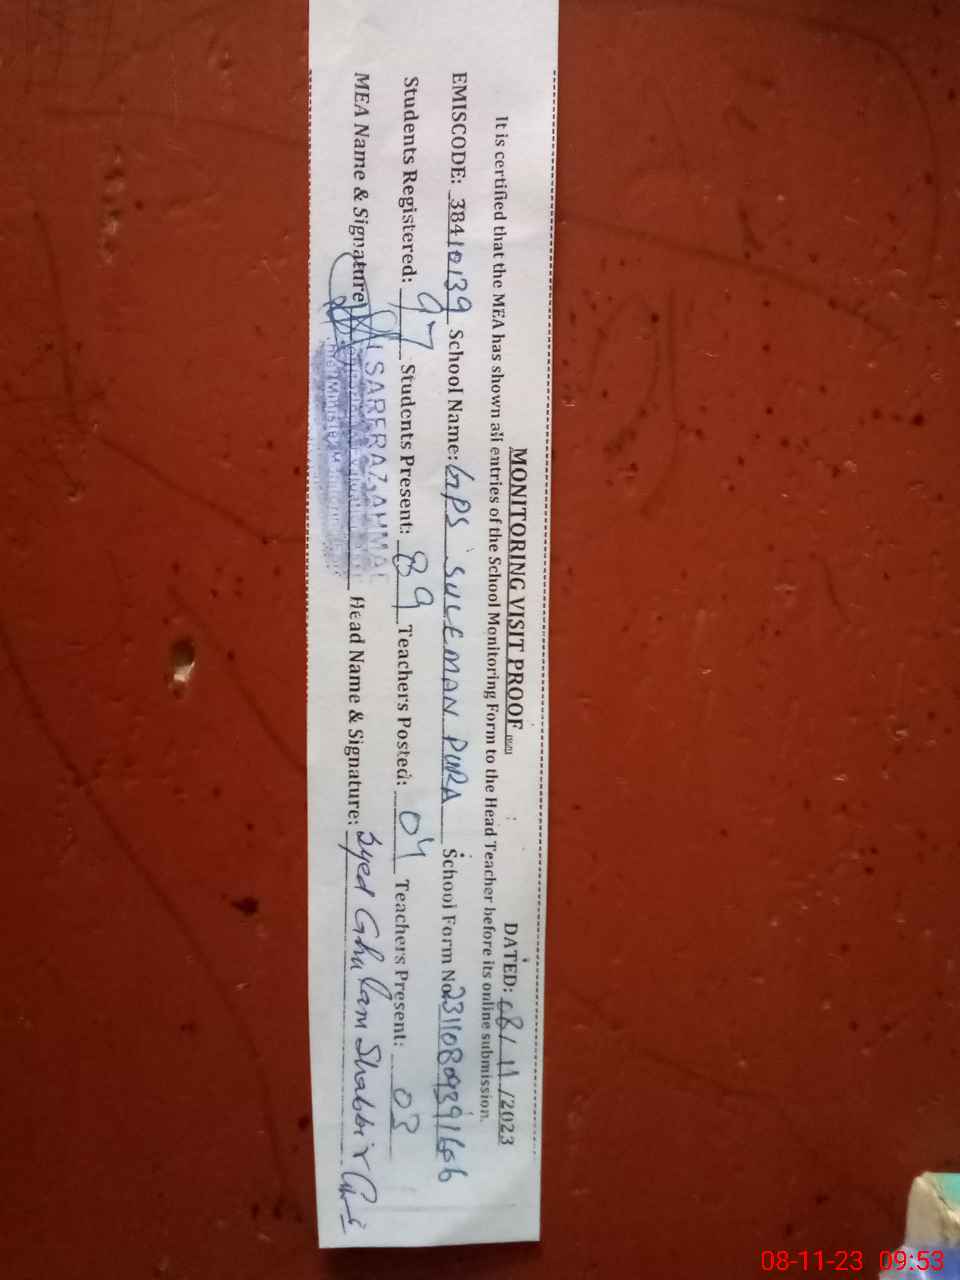 MONITORING VISIT PROOF
DATED: 08/11/2023
It is certified that the MEA has shown all entries of the School Monitoring Form to the Head Teacher before its online submission.
EMISCODE: 38410139 School Name: GPS SULEMAN PURA School Form No. 23110809391606
Students Registered: 97 Students Present: 89 Teachers Posted: 04 Teachers Present: 03
MEA Name & Signature Head Name & Signature: Syed Ghulam Shabbir
SARFRAZ AHMAD
08-11-23 09:53